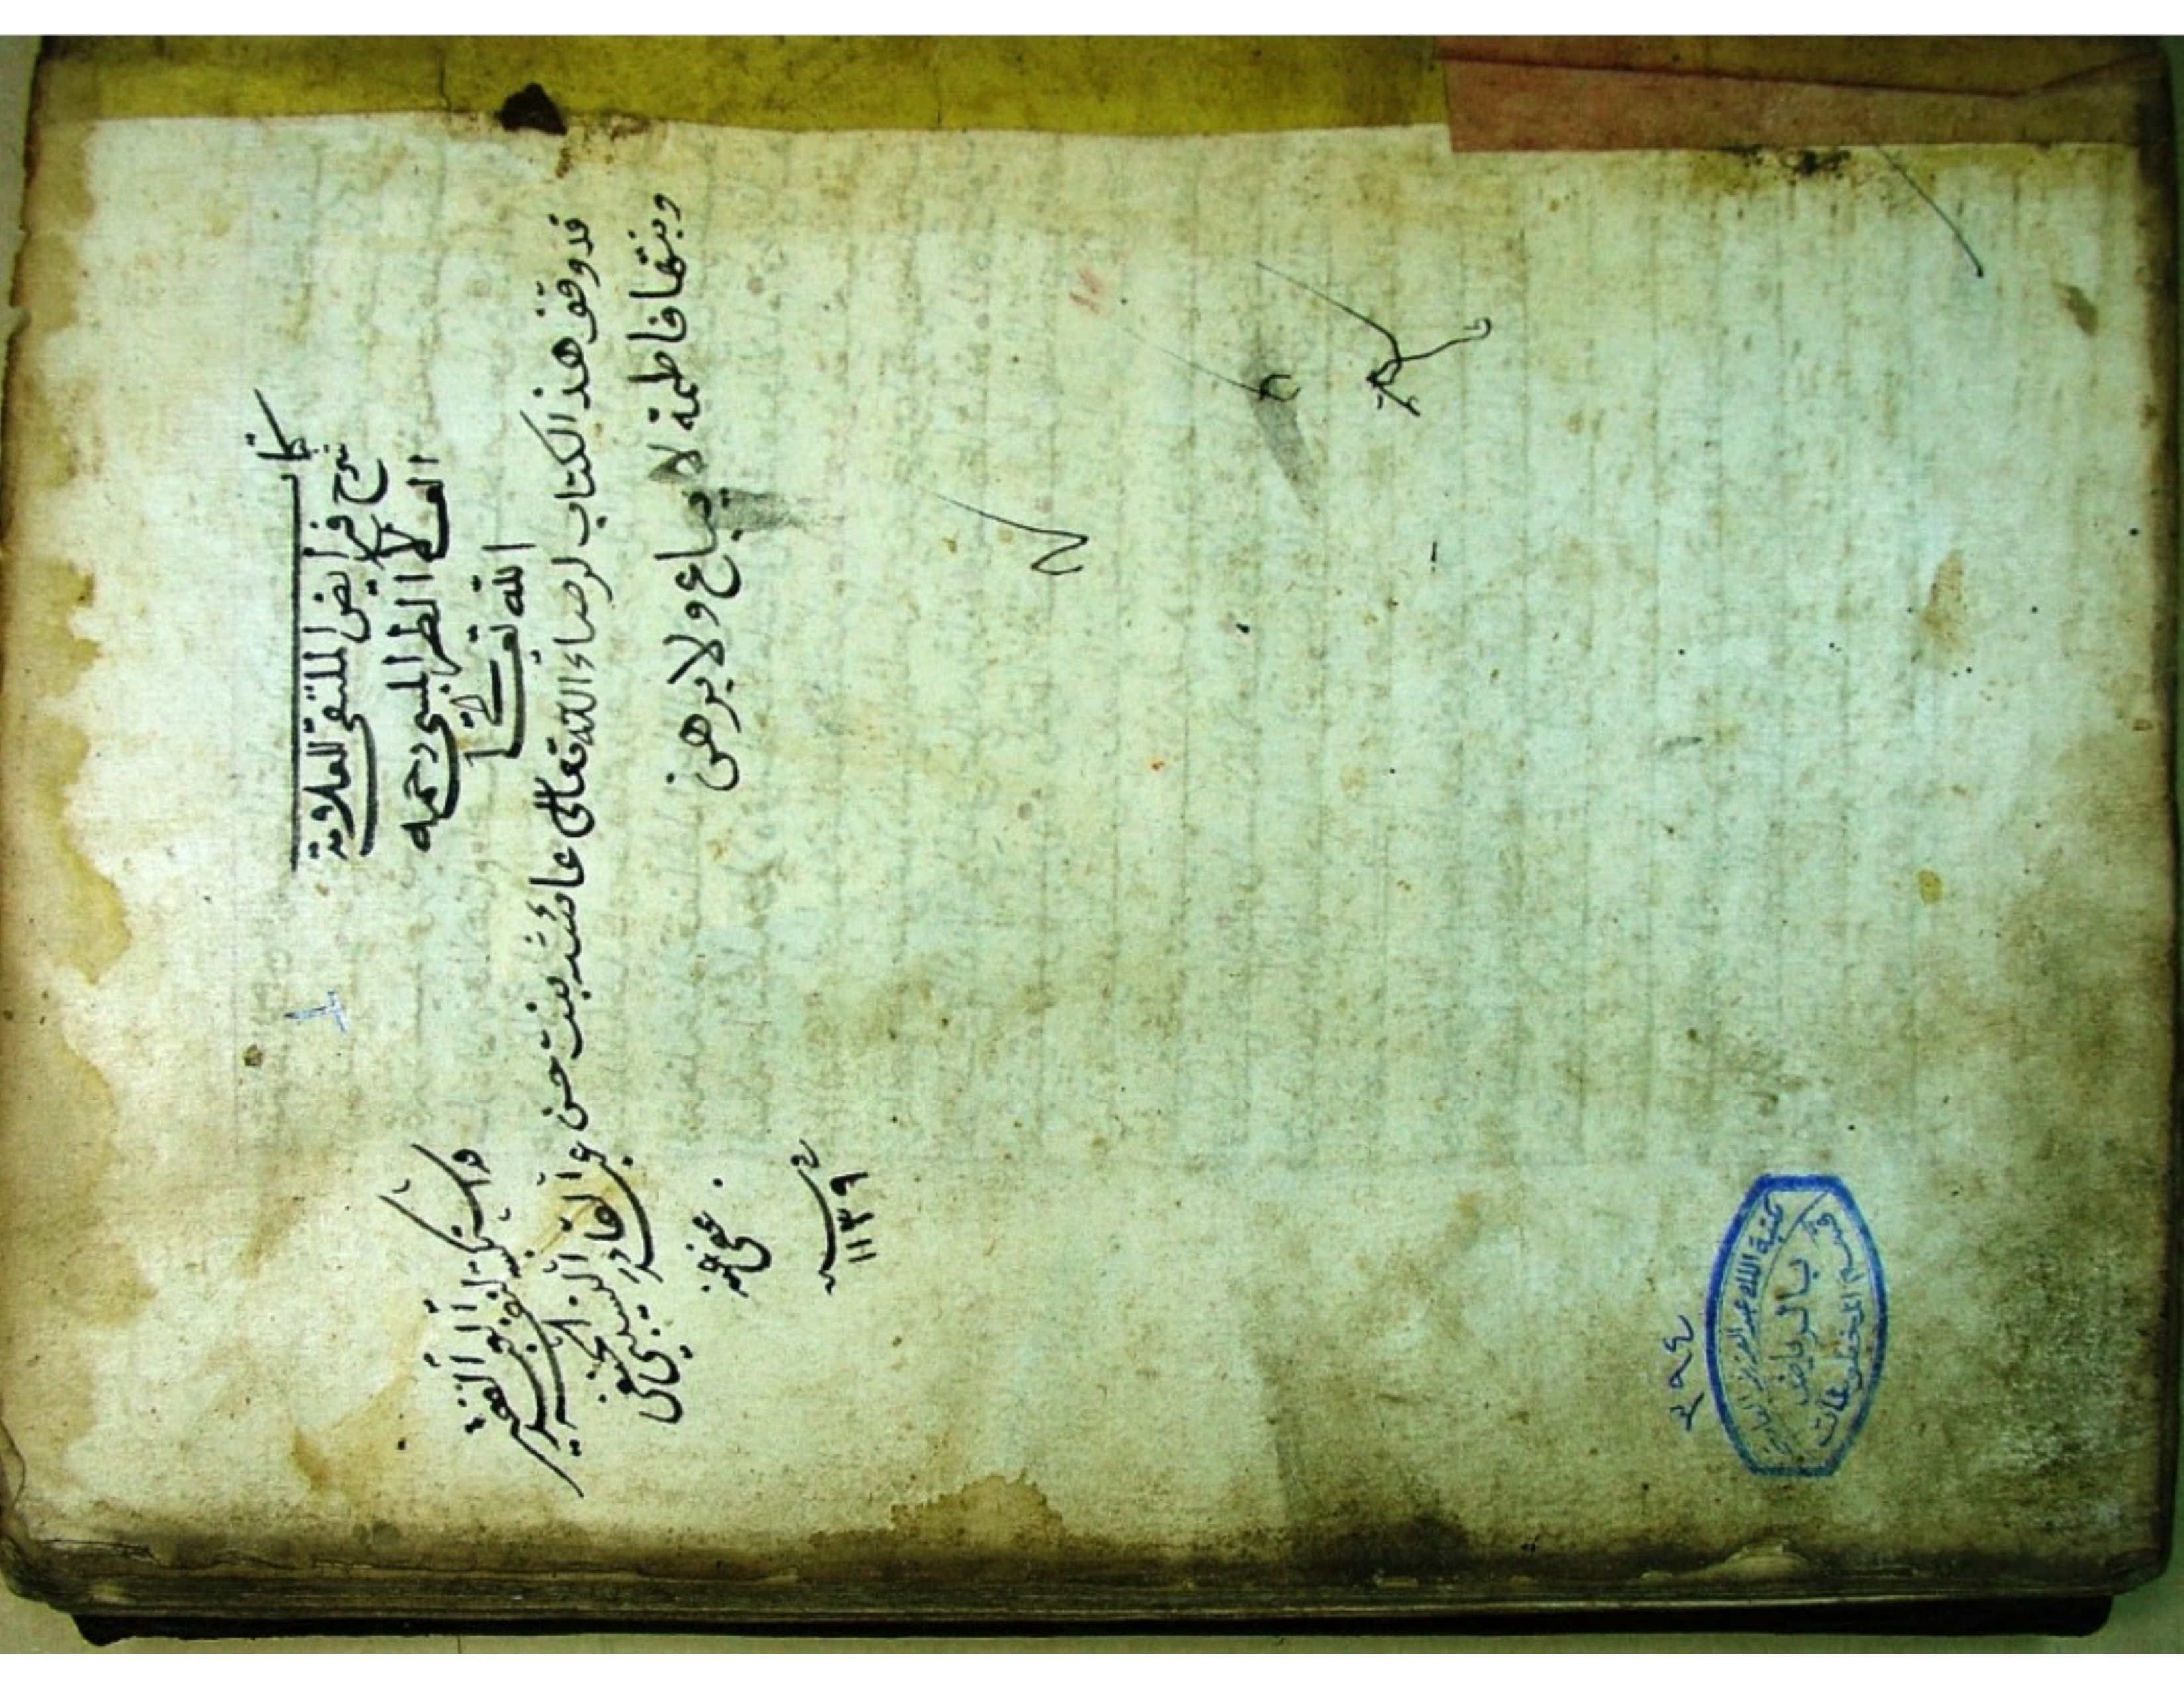 كتاب
شرح فرائض الملتقى للعلامة
العلا الطرابلسي رحمه
الله تعالى
قد وقف هذا الكتاب لرضاء الله تعالى عائشه بنت حسن
وبنتها فاطمة لا يباع ولا يرهن
الفقير
عبد القادر
عفي عنه
سنة
١١٣٩
٢٩٤
مكتبة الملك عبد العزيز العامة
بالرياض
قسم المخطوطات